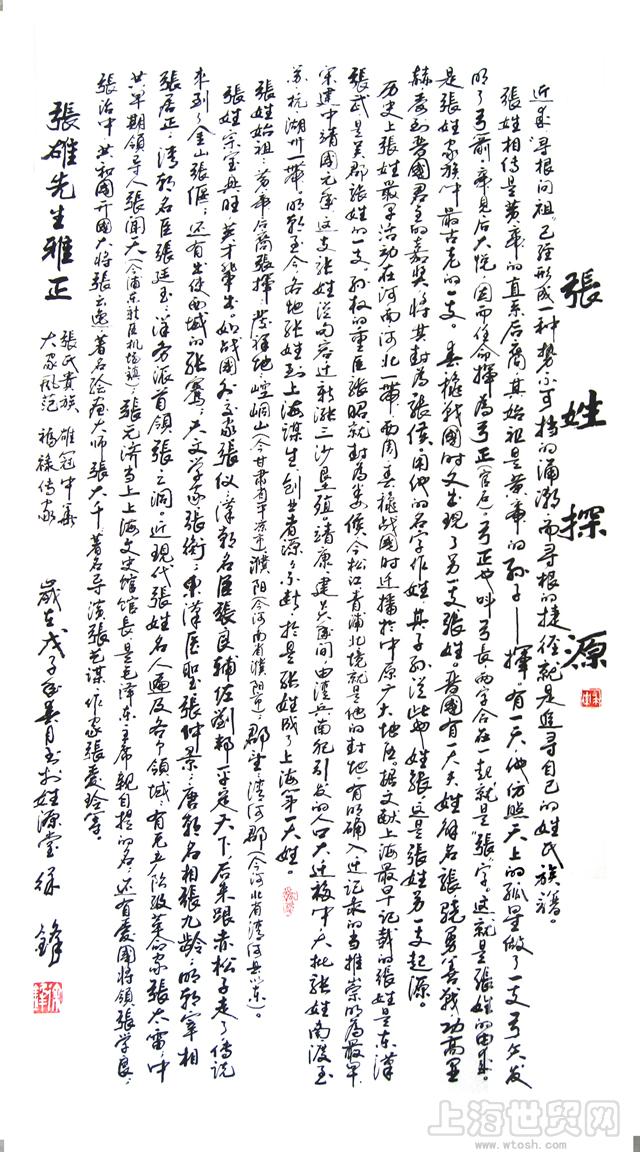 張姓探源
近来寻根问祖，已经形成一种势不可挡的涌潮，而寻根的捷径就是追寻自己的姓氏族谱。
張姓相传是黄帝的直系后裔，其始祖是黄帝的孙子——揮。有一天，他仿照天上的弧星做了一支弓矢，发
明了弓箭，帝见后大悦，因而任命揮為弓正(官名)，弓正也叫弓長，两字合在一起就是"張"字。这就是張姓的由来。
是張姓家族中最古老的一支。春穐戰國时又出現了另一支張姓。晋國有一大夫姓解名張，驍勇善戰，功高显
赫，受到晋國君主的嘉奖，将其封為張侯，用他的名字作姓，其子孙从此也姓張，这是張姓另一支起源。
历史上張姓最早活动在河南、河北一带，西周、春穐战國时迁播於中原广大地区。据文献，上海最早记载的張姓是东漢
張武，是吴郡張姓的一支。孙权的重臣張昭就封為娄侯，今松江青浦北境就是他的封地。有明确入迁记录的当推崇明為最早，
宋建中靖國元年，这支張姓从句容迁新涨三沙垦殖。靖康、建炎年间，由漢兵南犯引发的人口大迁移中，大批張姓南渡至
苏、杭、湖州一带。明朝至今，各地張姓到上海谋生、創业者源源不断，於是張姓成了上海第一大姓。
張姓始祖：黄帝后裔張揮；發祥地：崆峒山(今甘肃省平凉市)濮阳(今河南省濮阳市)；郡望：清河郡(今河北省清河县以东)。
張姓宗室兴旺，英才辈出。如战國外交家張仪；漢朝名臣張良，辅佐劉邦平定天下，后来跟赤松子走了，传说
来到了金山張堰；还有出使西域的張騫；天文学家張衡；东漢医聖張仲景；唐朝名相張九齡；明朝宰相
張居正；清朝名臣張廷玉；洋务派首領張之洞。近現代張姓名人遍及各个領域：有无产阶级革命家張太雷，中
共早期領导人張闻天(今浦东新区机场鎮)，張元济当上上海文史馆馆長，是毛泽东主席親自提的名，还有爱國将領張学良、
張治中，共和國开國大将張云逸，著名绘画大师張大千，著名导演張艺谋，作家張爱玲等。
張雄先生雅正
張氏貴族 雄冠中華
大家風范 福禄传家
嵗在戊子年春月书於姓源堂 徐鋒
上海世贸网
www.wtosh.com